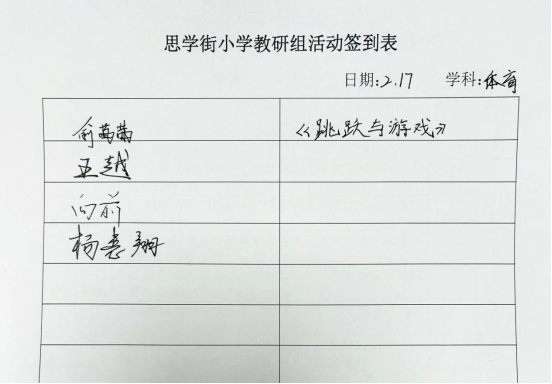 思学街小学教研组活动签到表
日期:2.17 学科:体育
《跳跃与游戏》
王越
向前
杨